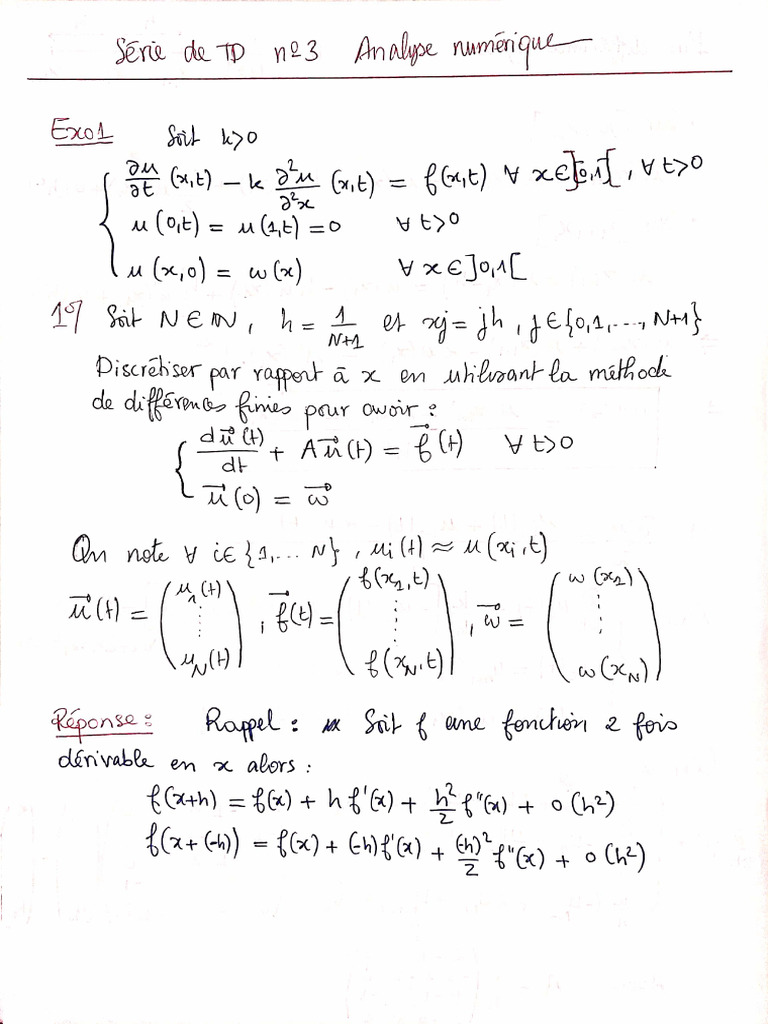 Série de TD n°3 Analyse numérique
Exo1 Soit k>0
∂u/∂t (x,t) − k ∂²u/∂²x (x,t) = f(x,t) ∀ x∈]0,1[, ∀ t>0
u(0,t) = u(1,t) = 0 ∀ t>0
u(x,0) = w(x) ∀ x∈]0,1[
1°/ Soit N∈ℕ, h = 1/N+1 et xj = jh, j∈{0,1,...,N+1}
Discrétiser par rapport à x en utilisant la méthode
de différences finies pour avoir :
du⃗(t)/dt + Au⃗(t) = f⃗(t) ∀ t>0
u⃗(0) = w⃗
On note ∀ i∈{1,...N}, ui(t) ≈ u(xi,t)
u⃗(t) = (u₁(t) ⋮ uN(t)), f⃗(t) = (f(x₁,t) ⋮ f(xN,t)), w⃗ = (w(x₁) ⋮ w(xN))
Réponse : Rappel : Soit f une fonction 2 fois
dérivable en x alors :
f(x+h) = f(x) + h f'(x) + h²/2 f"(x) + o(h²)
f(x+(-h)) = f(x) + (-h)f'(x) + (-h)²/2 f"(x) + o(h²)